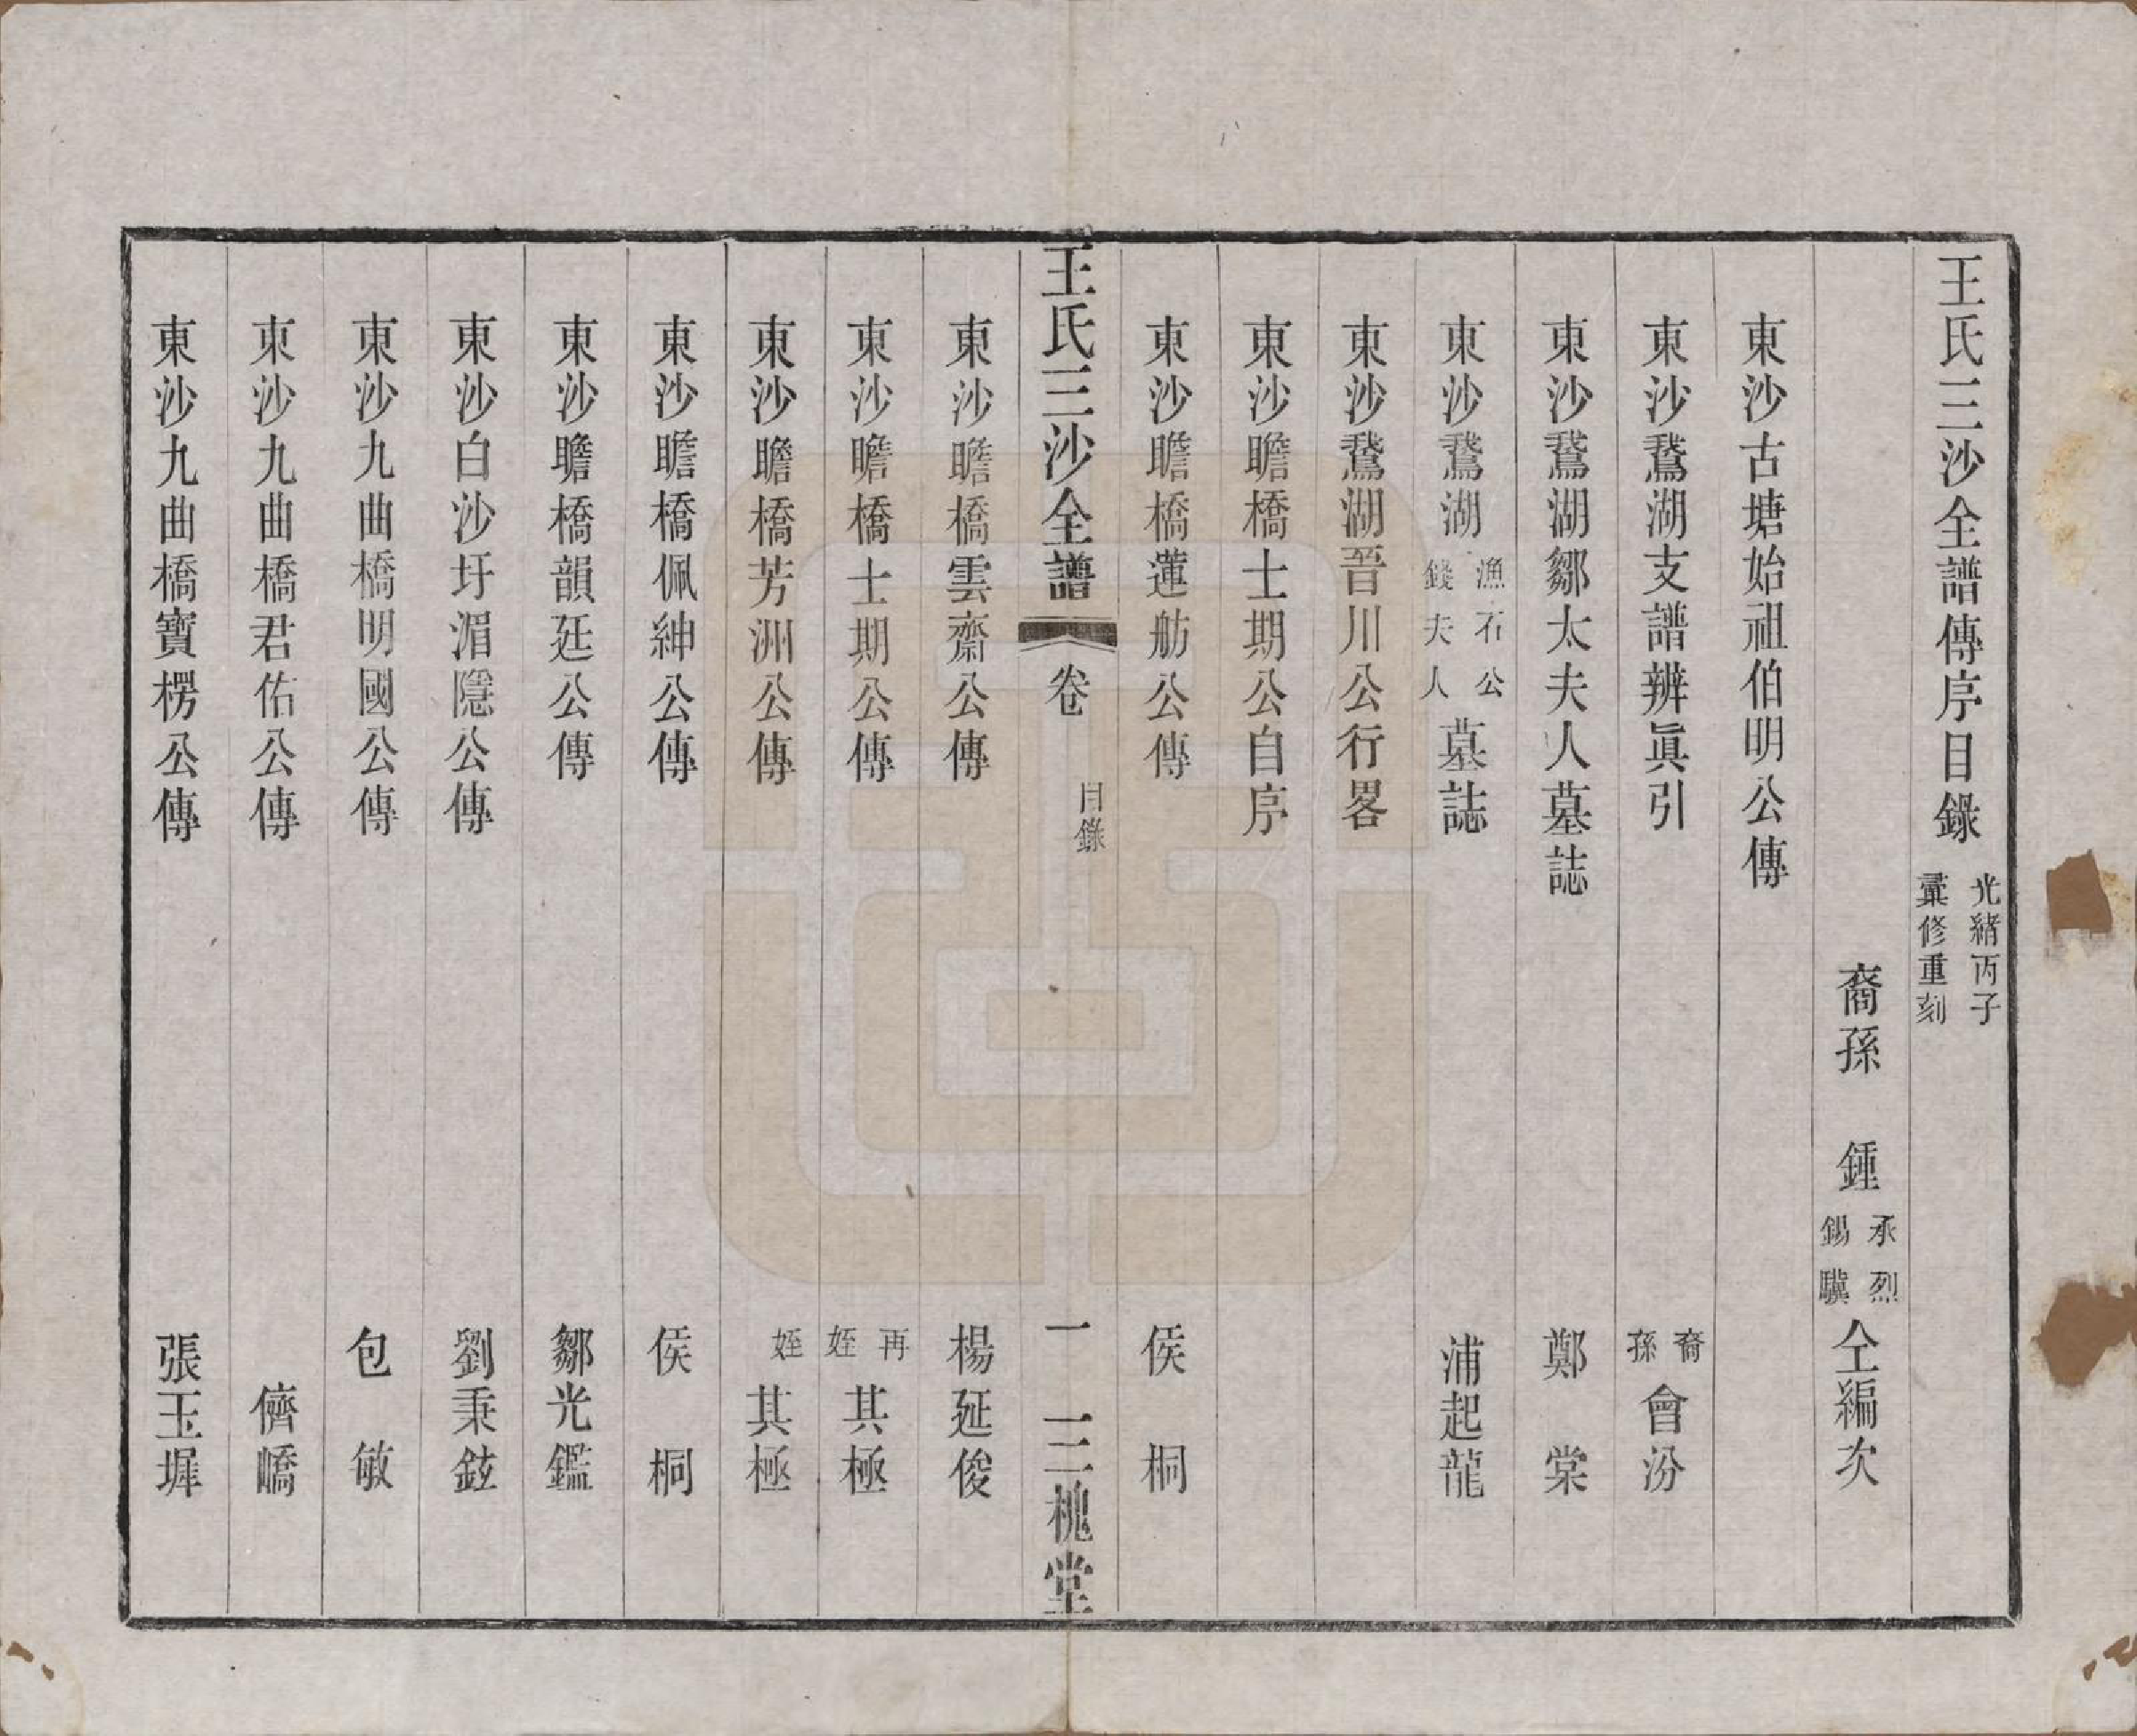 王氏三沙全譜傳序目錄 光緒丙子彚修重刻
裔孫 鍾 承烈 錫驥 仝編次
東沙古塘始祖伯明公傳
東沙鵞湖支譜辨眞引 裔孫會汾
東沙鵞湖鄒太夫人墓誌 鄭棠
東沙鵞湖漁石公錢夫人墓誌 浦起龍
東沙鵞湖晋川公行畧
東沙瞻橋士期公自序
東沙瞻橋蓮舫公傳 侯桐
王氏三沙全譜 卷 目錄 一 三槐堂
東沙瞻橋雲齋公傳 楊延俊
東沙瞻橋士期公傳 再姪其極
東沙瞻橋芳洲公傳 姪其極
東沙瞻橋佩紳公傳 侯桐
東沙瞻橋韻廷公傳 鄒光鑑
東沙白沙圩湄隱公傳 劉秉鉉
東沙九曲橋明國公傳 包敏
東沙九曲橋君佑公傳 儕嶠
東沙九曲橋寶楞公傳 張玉墀